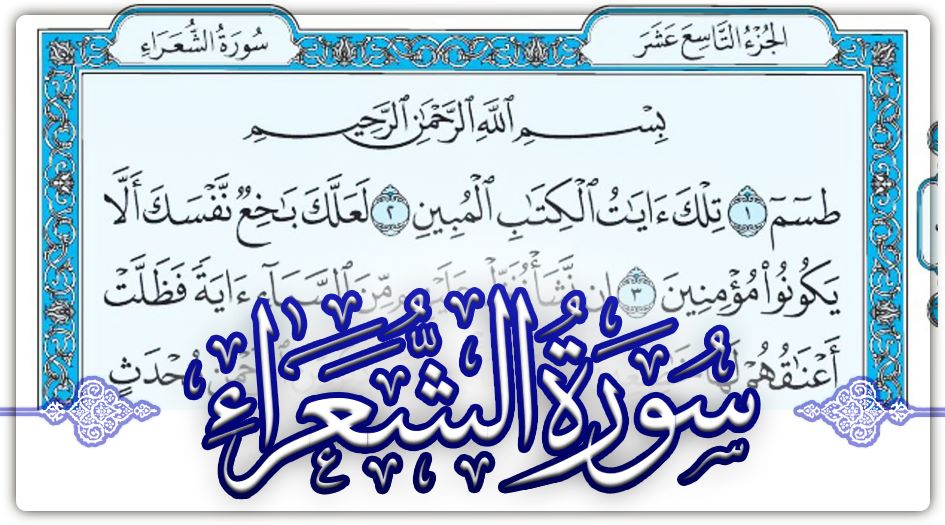 الجُزْءُ التَّاسِعَ عَشَرَ
سُورَةُ الشُّعَرَاءِ
بِسْمِ ٱللَّهِ ٱلرَّحْمَٰنِ ٱلرَّحِيمِ
طسٓمٓ ١ تِلْكَ ءَايَٰتُ ٱلْكِتَٰبِ ٱلْمُبِينِ ٢ لَعَلَّكَ بَٰخِعٌ نَّفْسَكَ أَلَّا
يَكُونُوا۟ مُؤْمِنِينَ ٣ إِن نَّشَأْ نُنَزِّلْ عَلَيْهِم مِّنَ ٱلسَّمَآءِ ءَايَةً فَظَلَّتْ
أَعْنَٰقُهُمْ مُحْدَثٍ
سُورَةُ الشُّعَرَاءِ